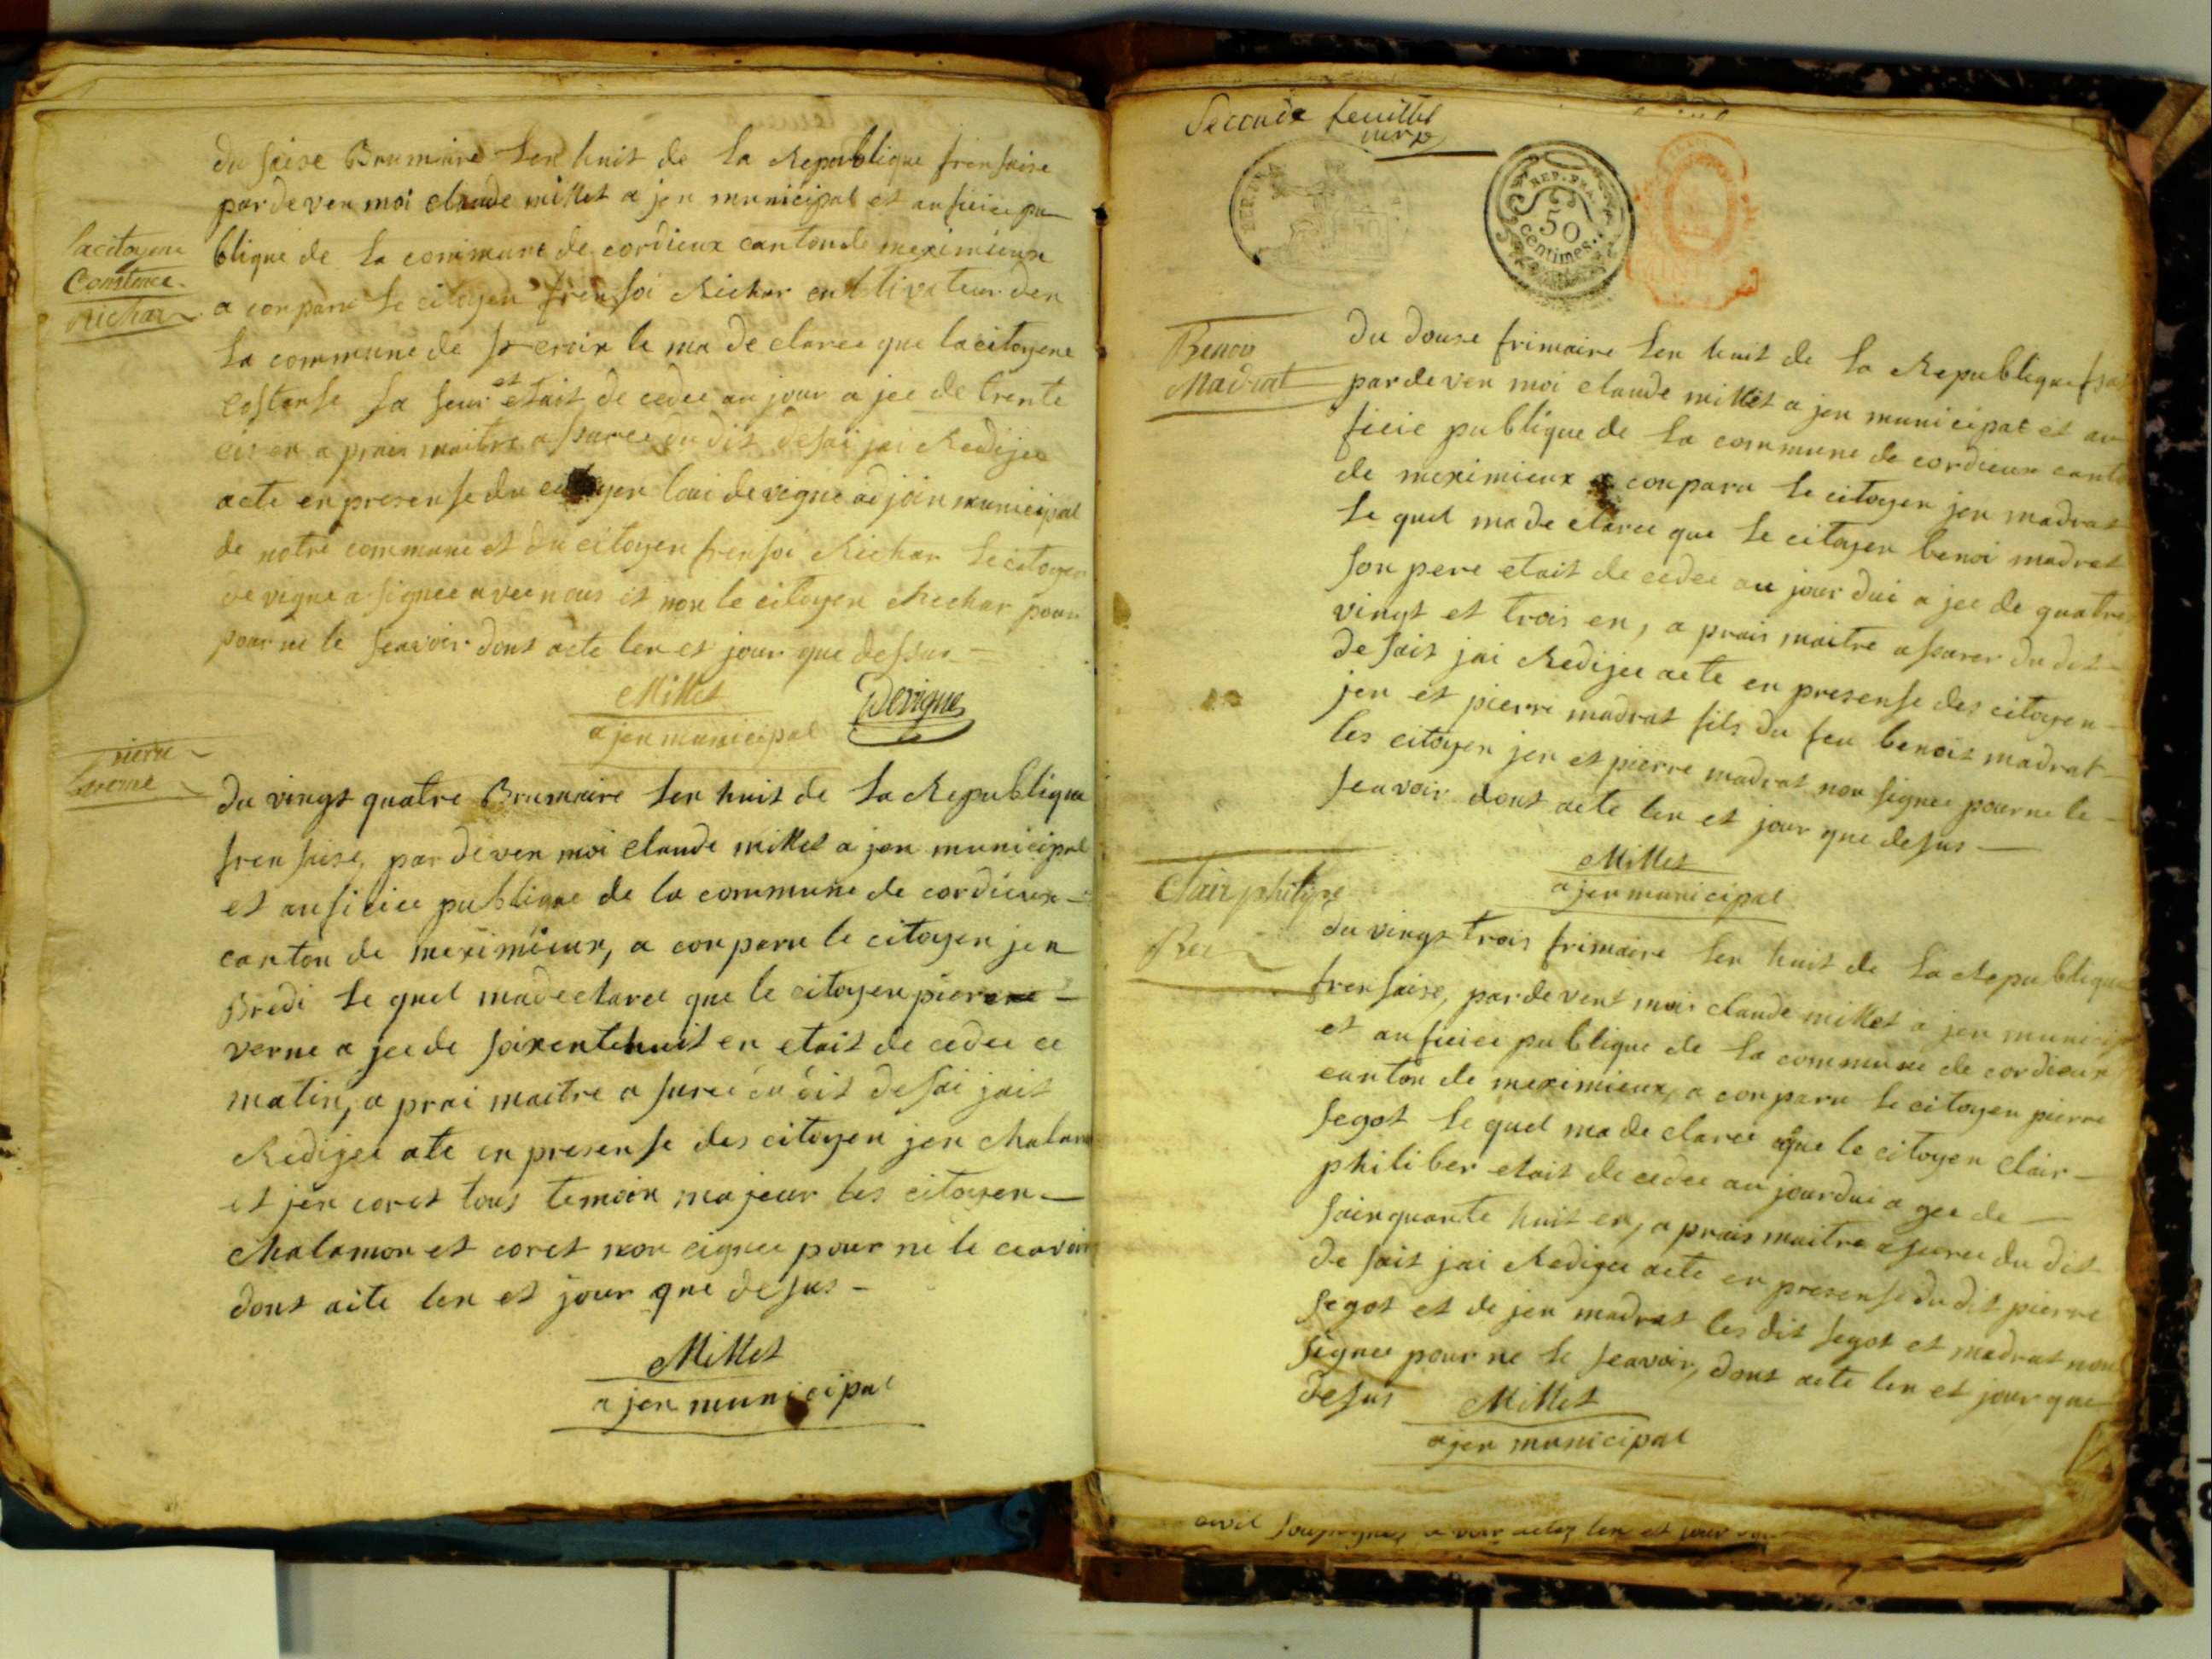 du saise Brumaire len huit de la Republique frensaise
pardeven moi claude millet a jen municipal et aufícice pu
blique de la commune de cordieux canton de meximieux
a conparu le citoyen frensoi Richar cultivateur den
la commune de st croix le ma de claree que la citoyene
costanse sa seur etait de cedee au jour a jee de trente
en a prais maitre assuree du dit desai jai Redijee
acte en presense du citoyen loui devigne adjoin municipal
de notre commune et du citoyen frensoi Richar le citoyen
devigne a signee avec nous et non le citoyen Richar pour
pour ne le seavoir dont acte len et jour que dessus
Millet
a jen municipal
Devigne
la citoyene
Constence
Richar
pierre
verne
du vingt quatre Brumaire len huit de la Republique
frensaise, pardeven moi claude millet a jen municipal
et auficice publique de la commune de cordieux
canton de meximieux, a conparu le citoyen jen
Bredi le quel madeclaree que le citoyen piere
verne a jee de soixentehuit en etait de cedee ce
matin, a prai maitre a suree du dit desai jait
Redigee ate en presense des citoyen jen chalam
et jen coret tous temoin majeur les citoyen
chalamon et coret non cignee pour ne le ceavoir
dont aite len et jour que desus
Millet
a jen municipal
Seconde feuillet
REP. FRA.
50
centimes.
Benoi
Madrat
du douse frimaire len huit de la Republique fra
pardeven moi claude millet a jen municipal et au
ficie publique de la commune de cordieux canto
de meximieux a conparu le citoyen jen madrat
le quel ma de claree que le citoyen benoi madrat
son pere etait de cedee au jour dui a jee de quatre
vingt et trois en, a prais maitre assurer du dit
desait jai Redijee acte en presense des citoyen
jen et pierre madrat fils du feu benoit madrat
les citoyen jen et pierre madrat non signee pour ne le
seavoir dont acte len et jour que desus
Millet
a jen municipal
Clair philipe
du vingt trois frimaire len huit de la Republique
frensaise, pardevent moi claude millet a jen municip
et auficice publique de la commune de cordieux
canton de meximieux, a conparu le citoyen pierre
segot le quel ma de claree que le citoyen clair
philiber etait decedee au jourdui a gee de
sainquante huit en, a prais maitre assuree du dit
desait jai Redigee acte en presense du dit pierre
segot et de jen madrat les dit segot et madrat non
signee pour ne le seavoir, dont acte len et jour que
desus
Millet
a jen municipal
len et jour